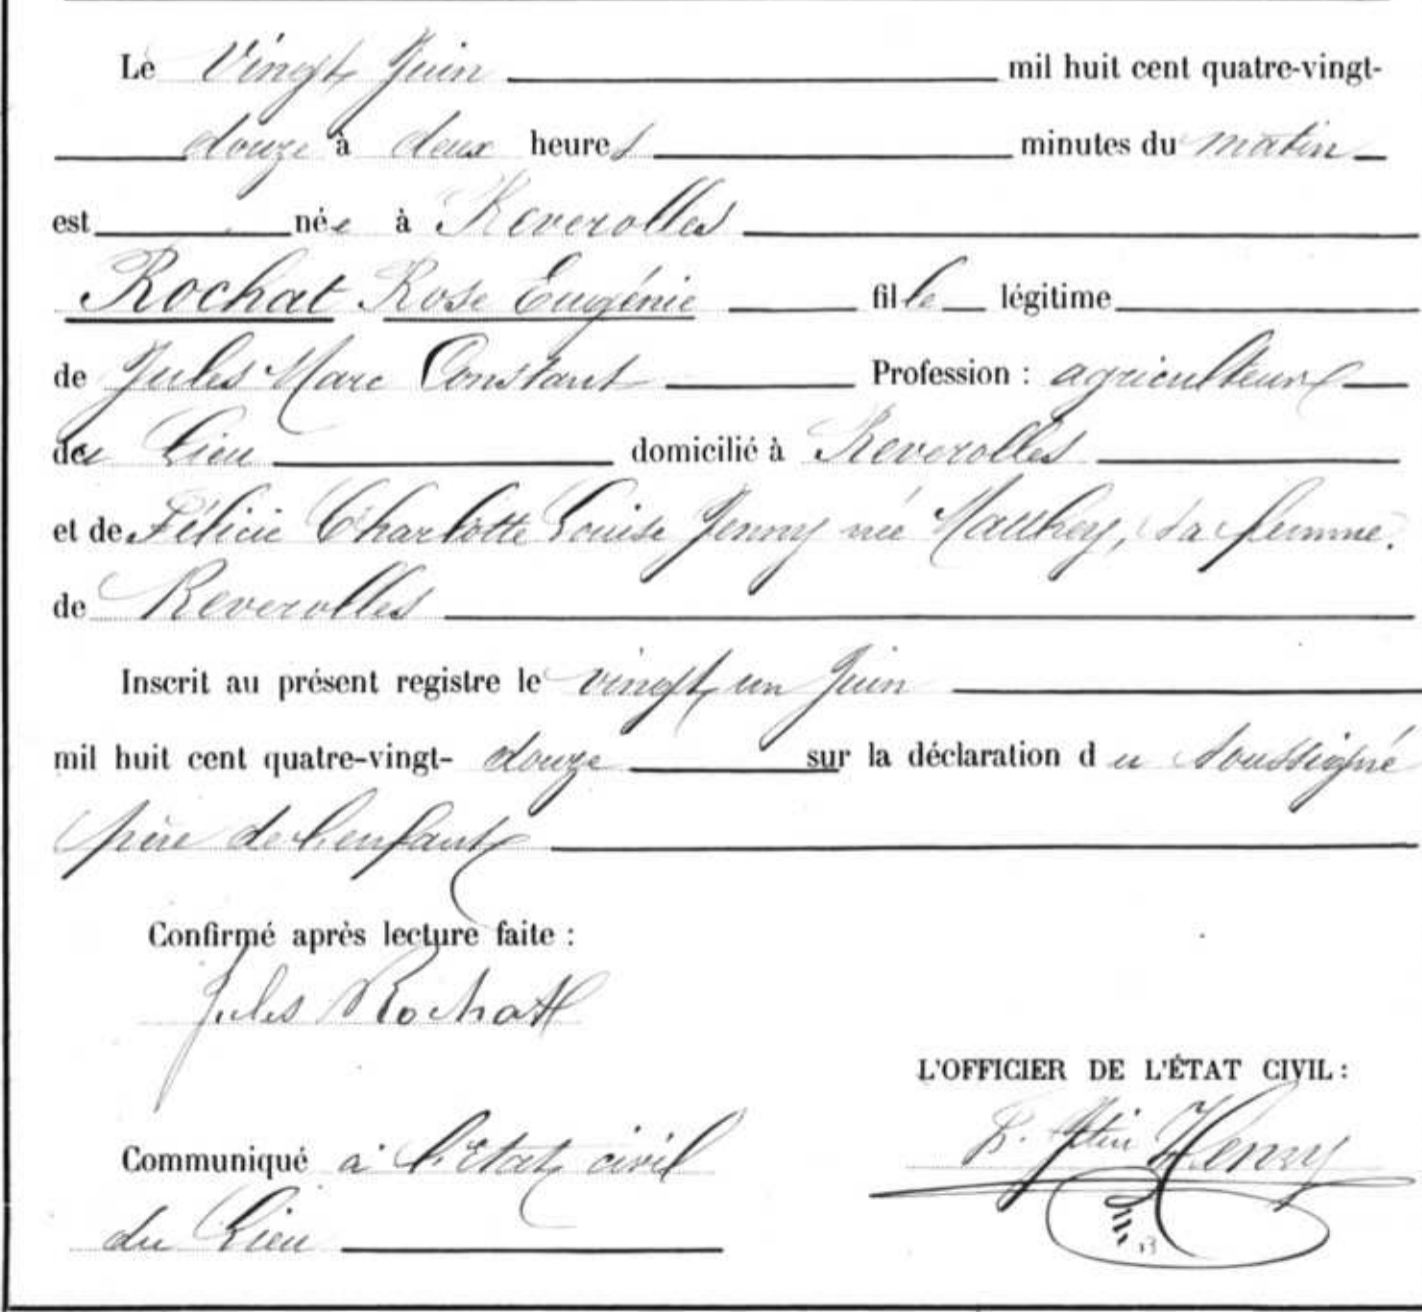 Le Vingt Juin mil huit cent quatre-vingt-
douze à deux heures minutes du matin
est née à Reverolles
Rochat Rose Eugénie fille légitime
de Jules Marc Constant Profession : agriculteur
du Lieu domicilié à Reverolles
et de Félicie Charlotte Louise Jenny née Mauhey, sa femme.
de Reverolles
Inscrit au présent registre le vingt un Juin
mil huit cent quatre-vingt- douze sur la déclaration du soussigné
père de l'enfant
Confirmé après lecture faite :
Jules Rochat
L'OFFICIER DE L'ÉTAT CIVIL :
Henry
Communiqué à l'Etat civil
du Lieu